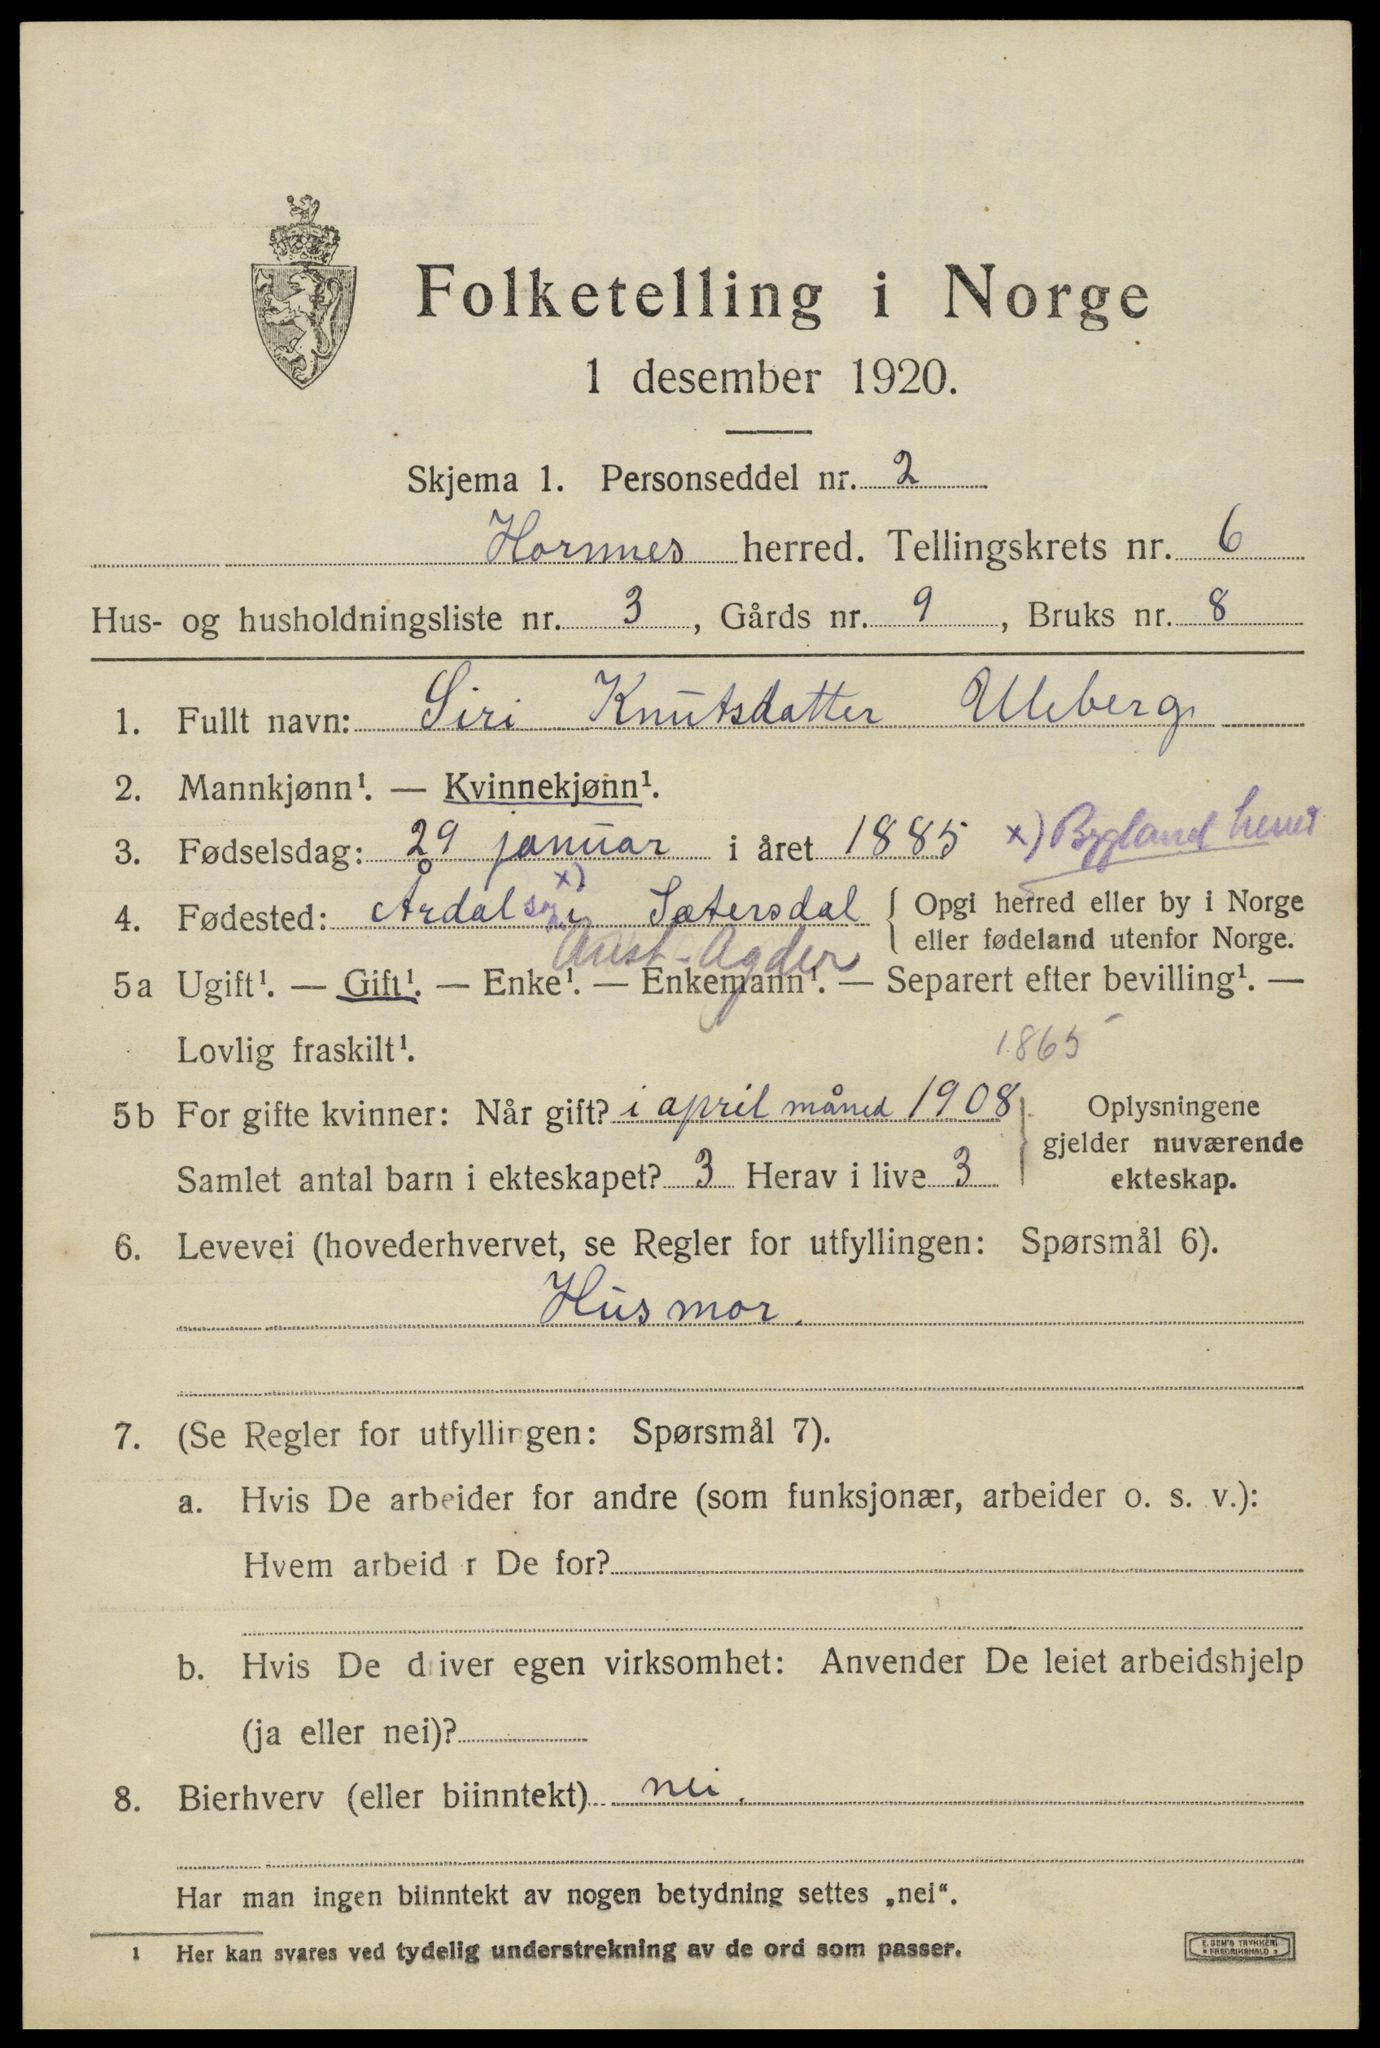 Folketelling i Norge
1 desember 1920.
Skjema 1. Personseddel nr. 2
Hornnes herred. Tellingskrets nr. 6
Hus- og husholdningsliste nr. 3, Gårds nr. 9, Bruks nr. 8
1. Fullt navn: Siri Knutsdatter Uleberg
2. Mannkjønn¹. — Kvinnekjønn¹.
3. Fødselsdag: 29 januar i året 1885 x) Bygland herred
x)
4. Fødested: Årdal i Sætersdal { Opgi herred eller by i Norge
eller fødeland utenfor Norge.
Aust-Agder
5a Ugift¹. — Gift¹. — Enke¹. — Enkemann¹. — Separert efter bevilling¹. —
Lovlig fraskilt¹.
1865
5b For gifte kvinner: Når gift? i april måned 1908 } Oplysningene
gjelder nuværende
ekteskap.
Samlet antal barn i ekteskapet? 3 Herav i live 3
6. Levevei (hovederhvervet, se Regler for utfyllingen: Spørsmål 6).
Husmor.
7. (Se Regler for utfyllingen: Spørsmål 7).
a. Hvis De arbeider for andre (som funksjonær, arbeider o. s. v.):
Hvem arbeid r De for?
b. Hvis De driver egen virksomhet: Anvender De leiet arbeidshjelp
(ja eller nei)?
8. Bierhverv (eller biinntekt) nei.
Har man ingen biinntekt av nogen betydning settes „nei“.
1 Her kan svares ved tydelig understrekning av de ord som passer.
E. SEM'S TRYKKERI
FREDRIKSHALD